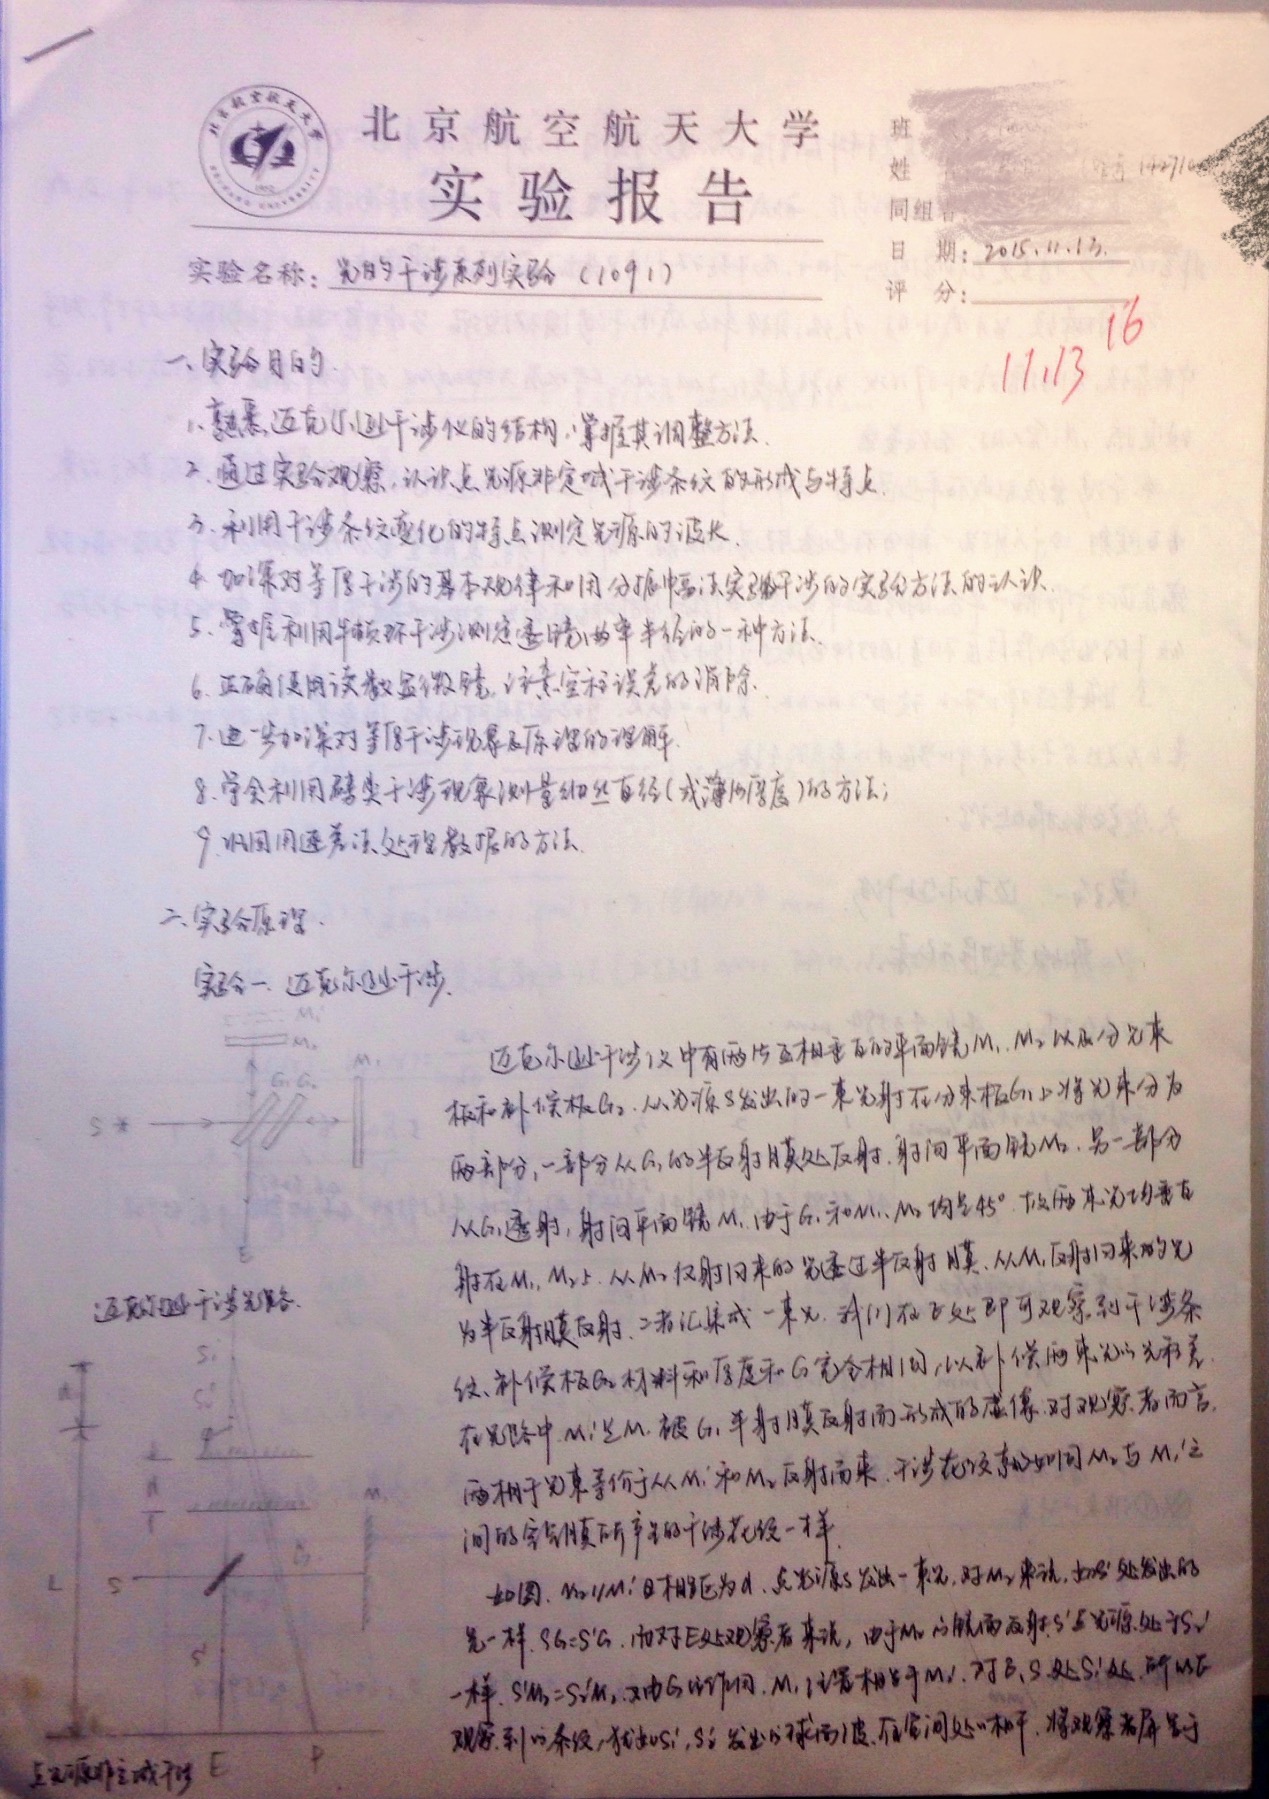 北京航空航天大学
实验报告
班
姓
同组者:
日 期: 2015.11.13.
评 分:
实验名称: 光的干涉系列实验 (1091)
16
11.13
一、实验目的.
1. 熟悉迈克尔逊干涉仪的结构,掌握其调整方法.
2. 通过实验观察,认识点光源非定域干涉条纹的形成与特点.
3. 利用干涉条纹变化的特点测定光源的波长.
4. 加深对等厚干涉的基本规律和用分振幅法实现干涉的实验方法的认识.
5. 掌握利用牛顿环干涉测定透镜曲率半径的一种方法.
6. 正确使用读数显微镜,注意空程误差的消除.
7. 进一步加深对等厚干涉现象及原理的理解.
8. 学会利用劈尖干涉现象测量细丝直径(或薄片厚度)的方法;
9. 巩固用逐差法处理数据的方法.
二、实验原理.
实验一、迈克尔逊干涉.
M₁'
M₂
G₁ G₂
M₁
S
E
迈克尔逊干涉光路.
迈克尔逊干涉仪中有两片互相垂直的平面镜M₁、M₂以及分光束
板和补偿板G₂. 从光源S发出的一束光射在分束板G₁上将光束分为
两部分,一部分从G₁的半反射膜处反射,射向平面镜M₂. 另一部分
从G₁透射,射向平面镜M₁. 由于G₁和M₁、M₂均呈45° 故两束光均垂直
射在M₁、M₂上. 从M₂反射回来的光透过半反射膜、从M₁反射回来的光
为半反射膜反射、二者汇集成一束光. 我们在E处即可观察到干涉条
纹、补偿板G₂材料和厚度和G₁完全相同,以补偿两束光的光程差.
在光路中. M₁'是M₁被G₁半射膜反射而形成的虚像. 对观察者而言,
两相干光束等价于从M₁'和M₂反射而来、干涉花纹就如同M₂与M₁'之
间的空气膜所产生的干涉花纹一样.
如图. M₂//M₁'且相距为d. 点光源S发出一束光,对M₂来说,如S'处发出的
光一样. SG=S'G. 而对E处观察者来说,由于M₂的镜面反射S'点光源处于S₂'
一样. S'M₂=S₂'M₂. 又由G的作用. M₁位置相当于M₁'. 对E, S处S₁'处. 所以E
观察到的条纹,犹如S₁', S₂'发出的球面波. 在空间处相干. 将观察者屏置于
M₁
L
S
S'
E
P
点光源非定域干涉